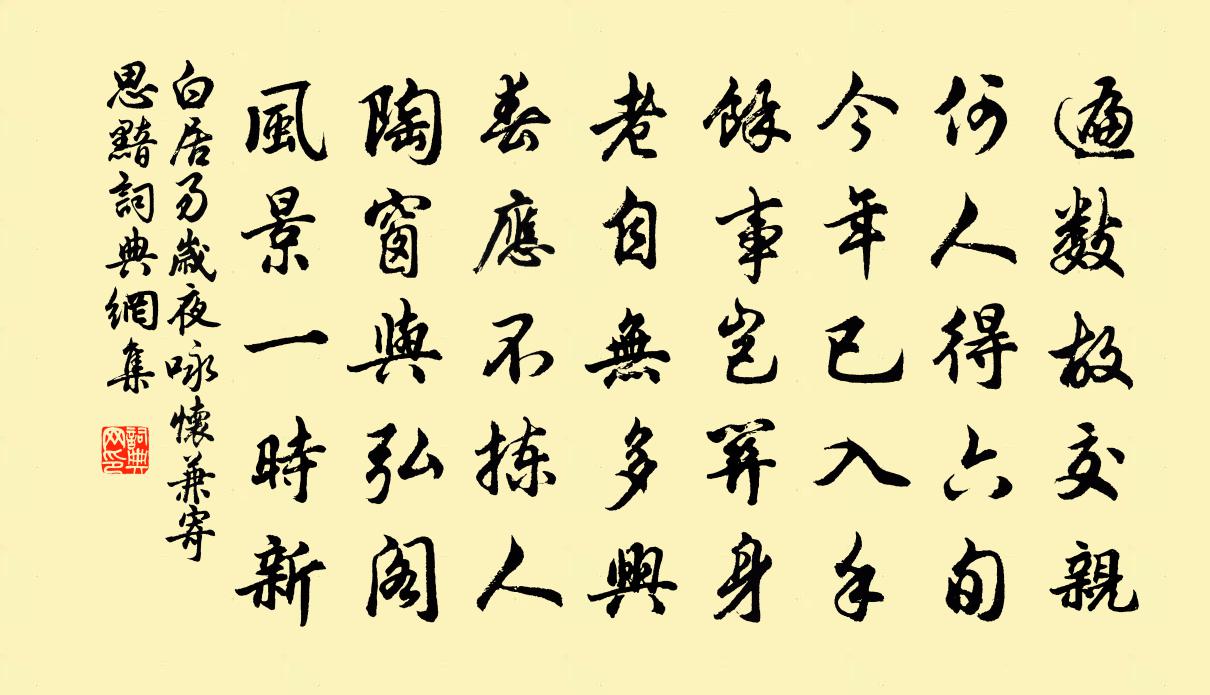 遍數故交親
何人得六旬
今年已入手
餘事豈關身
老自無多興
春應不揀人
陶窗與弘閣
風景一時新
白居易歲夜咏懷兼寄
思黯詞典網集
詞典網印